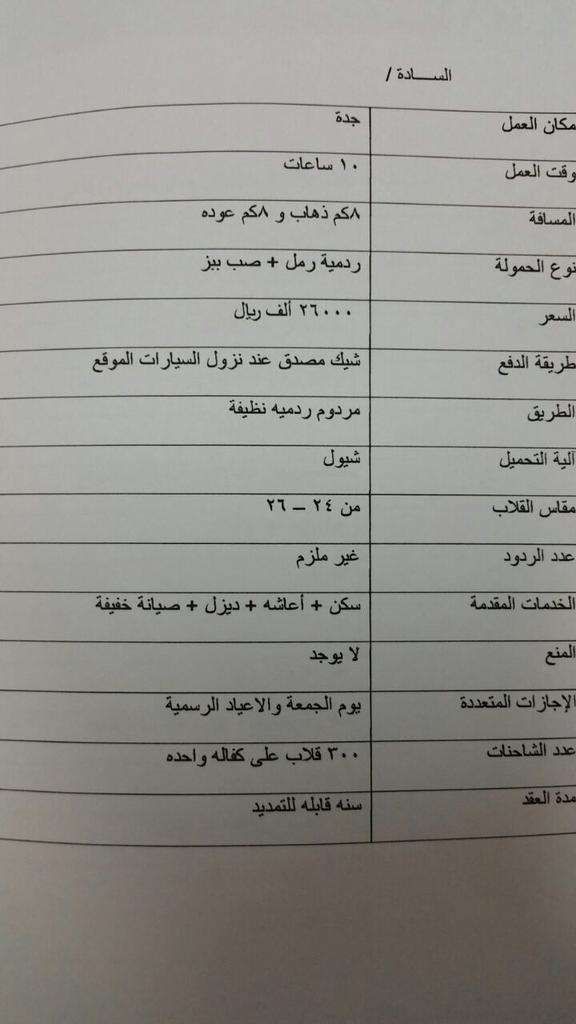 الســـادة /
مكان العمل جدة
وقت العمل ١٠ ساعات
المسافة ٨كم ذهاب و ٨كم عوده
نوع الحمولة ردمية رمل + صب بيز
السعر ٢٦٠٠٠ ألف ريال
طريقة الدفع شيك مصدق عند نزول السيارات الموقع
الطريق مردوم ردميه نظيفة
آلية التحميل شيول
مقاس القلاب من ٢٤ – ٢٦
عدد الردود غير ملزم
الخدمات المقدمة سكن + أعاشه + ديزل + صيانة خفيفة
المنع لا يوجد
الإجازات المتعددة يوم الجمعة والاعياد الرسمية
عدد الشاحنات ٣٠٠ قلاب على كفاله واحده
مدة العقد سنه قابله للتمديد